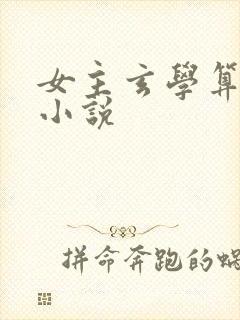 女主玄學算
小說
拼命奔跑的蝸